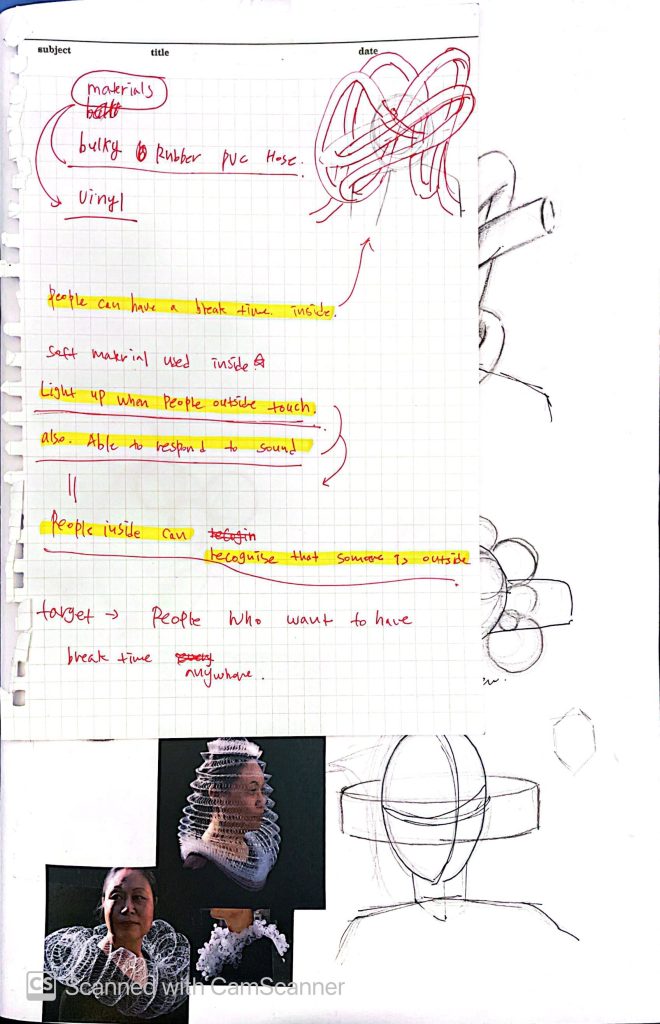 subject title date
materials
bulky Rubber PVC Hose.
Vinyl
People can have a break time. inside.
soft material used inside
Light up when people outside touch.
also. Able to respond to sound
People inside can
recognise that someone is outside
target → People who want to have
break time
anywhere.
CS Scanned with CamScanner